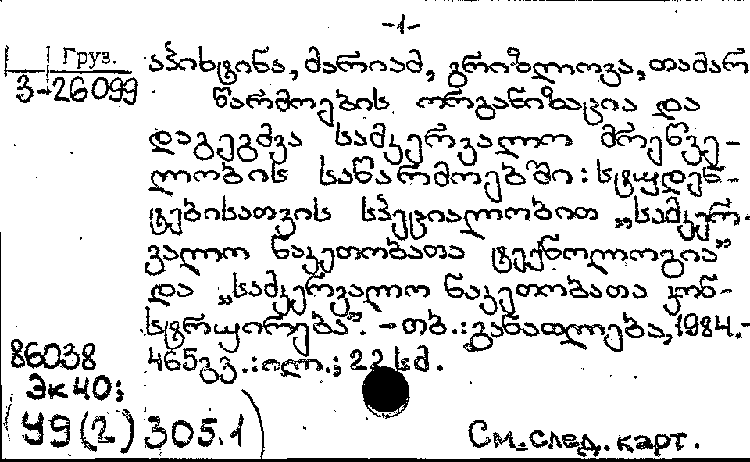 -1-
Груз.
3-26099
აპიხტინა, მარიამ, გრიზლოვა, თამარ
წარმოების ორგანიზაცია და
დაგეგმვა სამკერვალო მრეწვე-
ლობის საწარმოებში: სტუდენ-
ტებისათვის სპეციალობით „სამკერ-
ვალო ნაკეთობათა ტექნოლოგია“
და „სამკერვალო ნაკეთობათა კონ-
სტრუირება“. - თბ.: განათლება, 1984. -
465გვ.: ილ.; 22 სმ.
86038
Эк40;
(У9(2)305.1)
См. след. карт.